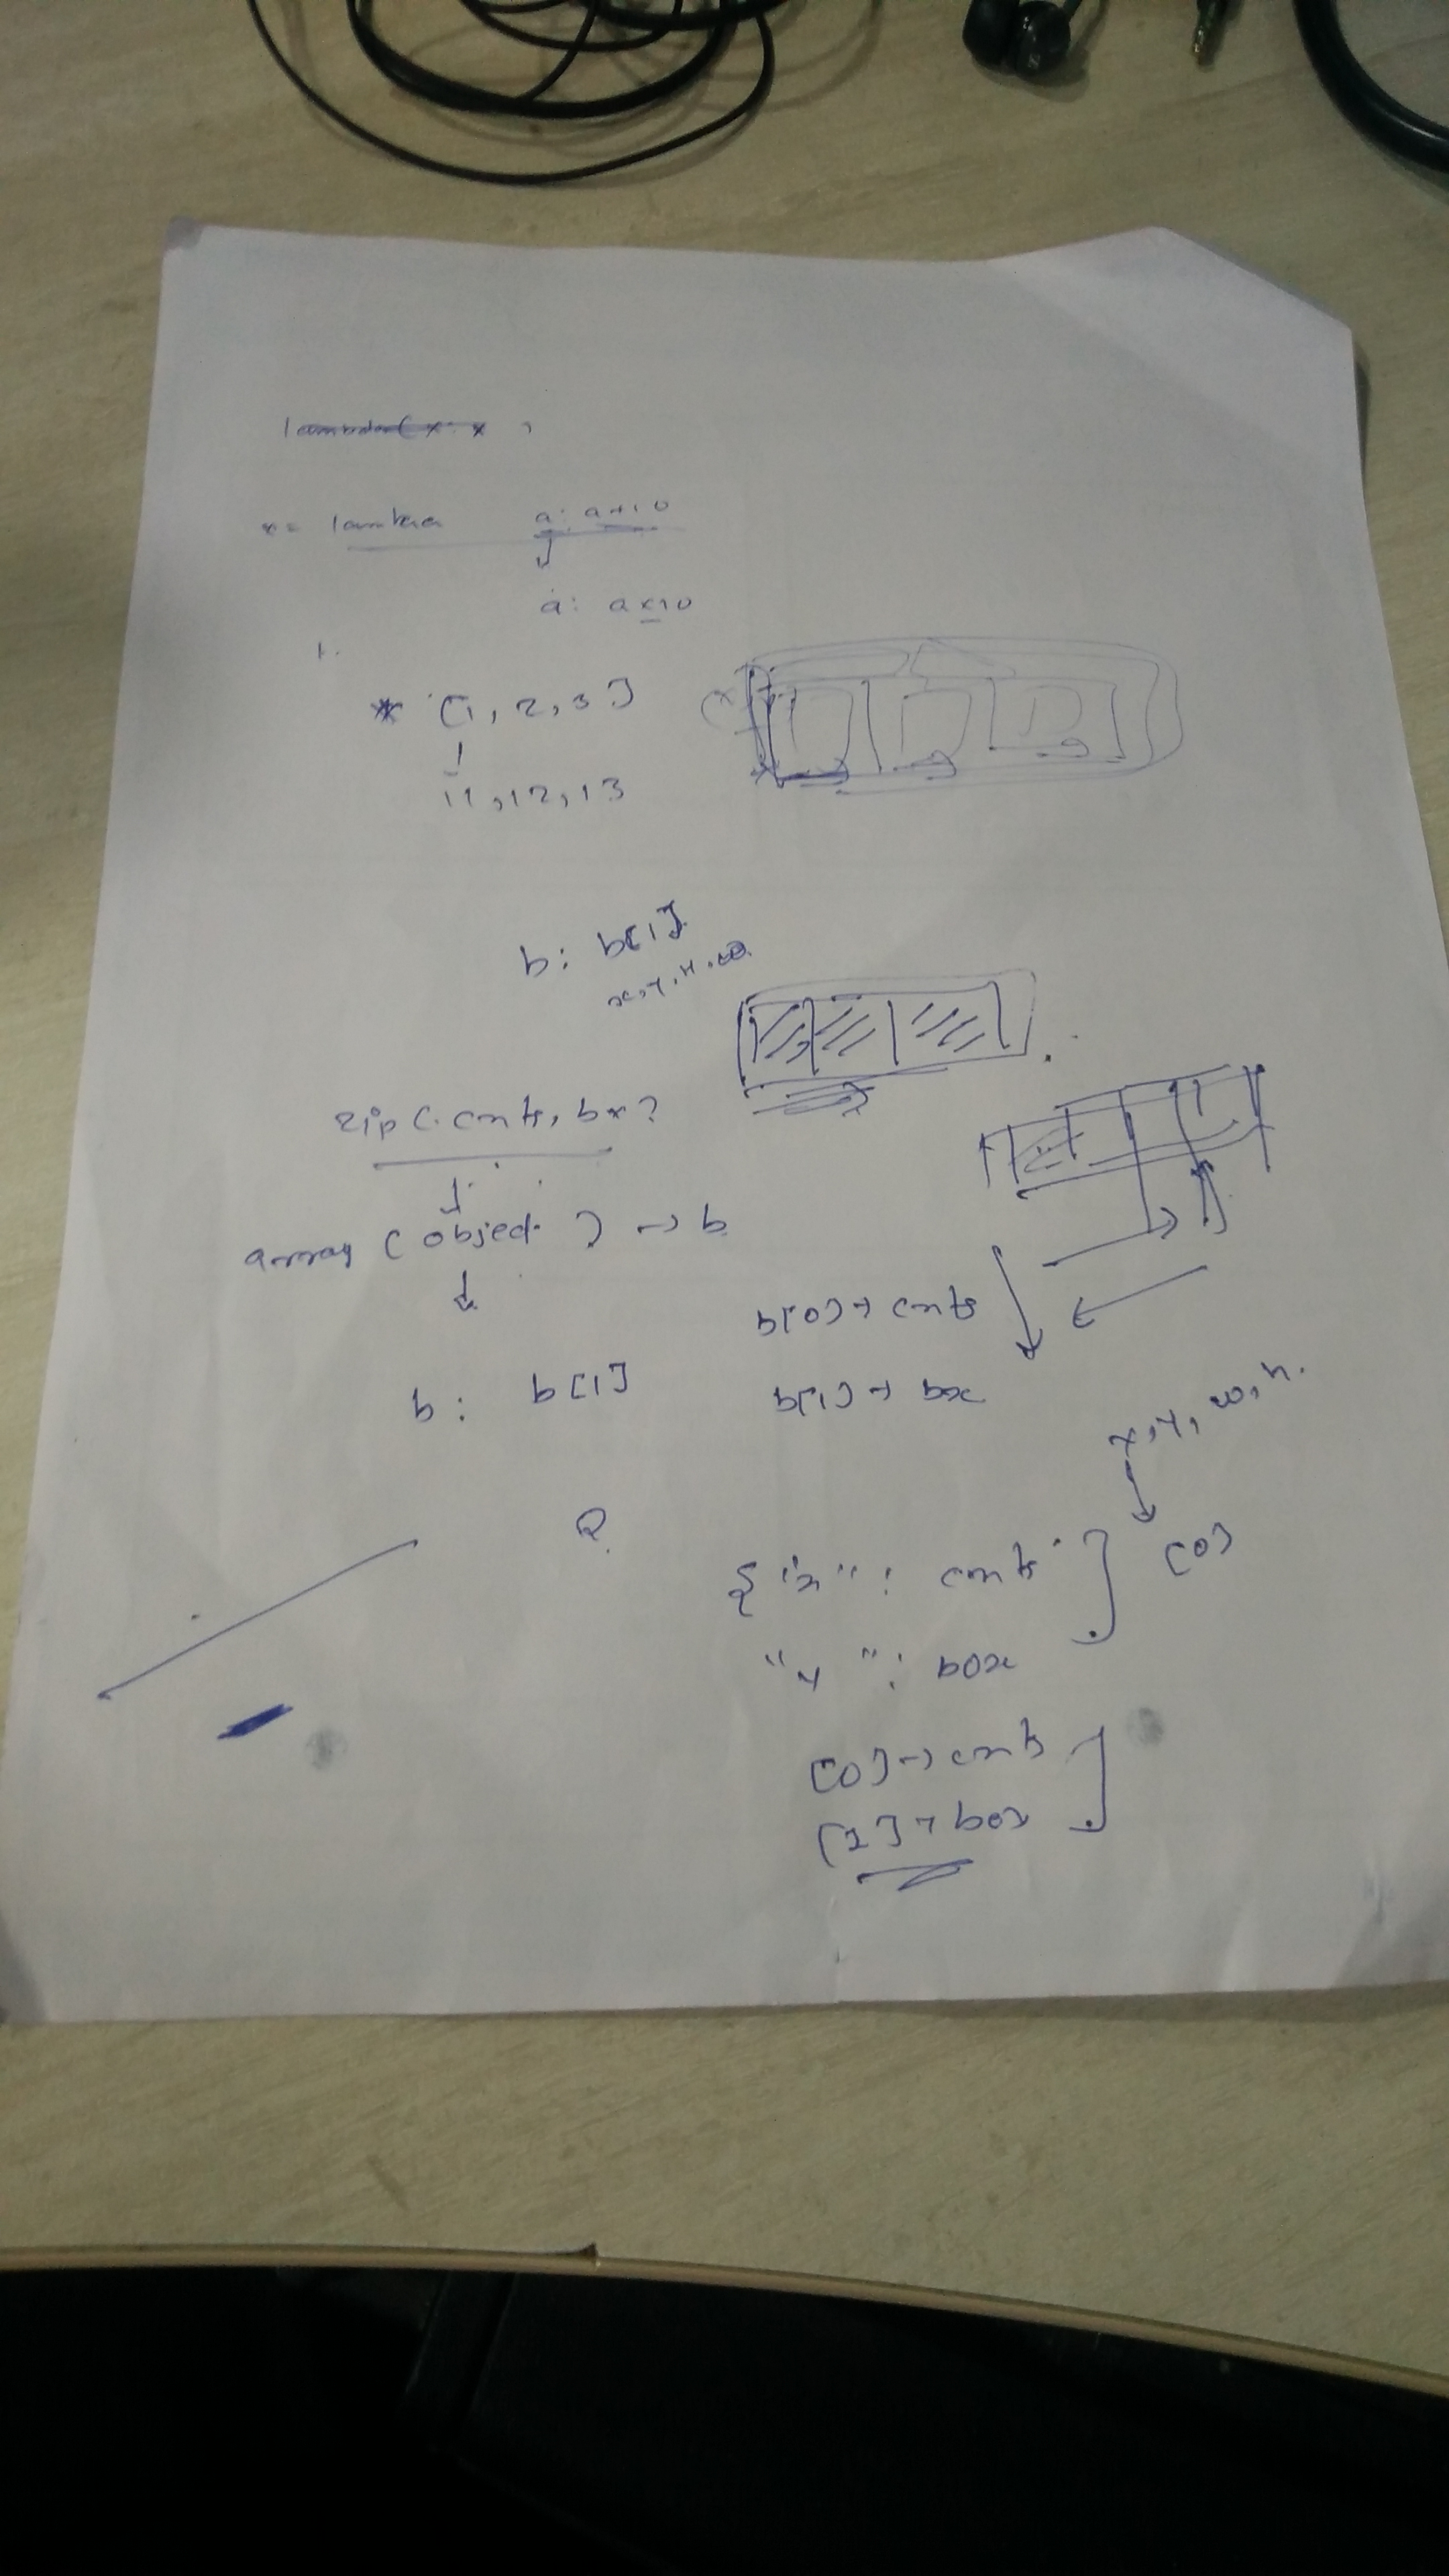 x = lambda a: a+10
a: a+10
1.
* [1, 2, 3]
11, 12, 13
b: b[1]
x, y, H, w
zip (cnts, bx)
array (object) → b
b[0] → cnts
b: b[1]
b[1] → bx
x, y, w, h.
{"x": cnts
[0]
"y": box
[0] → cnts
[1] → box